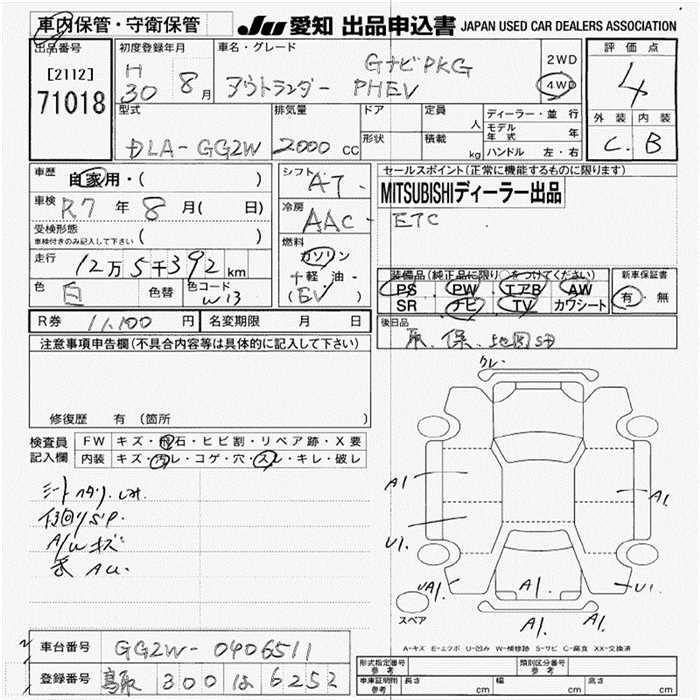 車内保管・守衛保管
JU 愛知 出品申込書 JAPAN USED CAR DEALERS ASSOCIATION
出品番号
[2112]
71018
初度登録年月
H
30 8 月
車名・グレード
GナビPKG
アウトランダー PHEV
2WD
4WD
評価点
4
外装 内装
C. B
型式
DLA-GG2W
排気量
2000 CC
ドア
形状
定員
人
積載
kg
ディーラー・並行
モデル年式 年
ハンドル 左・右
車歴
自家用・( )
車検
R7 年 8 月( 日)
受検形態
車検付きのみ記入して下さい ( )
走行
12万5千392 km
色
白 色替
色コード
W13
シフト
AT
冷房
AAC
燃料
ガソリン
軽・油
(EV)
セールスポイント(正常に機能するものに限ります)
MITSUBISHIディーラー出品
ETC
装備品(純正品に限り○をつけてください)
PS PW エアB AW
SR ナビ TV カワシート
新車保証書
有・無
R券 11,100 円
名変期限 月 日
後日品
取、保、地図SD
注意事項申告欄(不具合内容等は具体的に記入して下さい)
修復歴 有 (箇所
検査員
記入欄
FW キズ・飛石・ヒビ割・リペア跡・X要
内装 キズ・汚レ・コゲ・穴・スレ・キレ・破レ
シート
A/W キズ
クレ.
A1
A1.
U1.
A1.
A1.
U1.
A1.
A1.
スペア
A-キズ E-エクボ U-凹み W-補修跡 S-サビ C-腐食 XX-交換済
車台番号 GG2W-0406511
登録番号 鳥取 300 は 6252
形式指定番号
参考
類別区分番号
参考
車庫証明用
参考
長さ cm
幅 cm
高さ cm